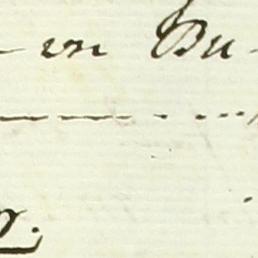 - en Bu -